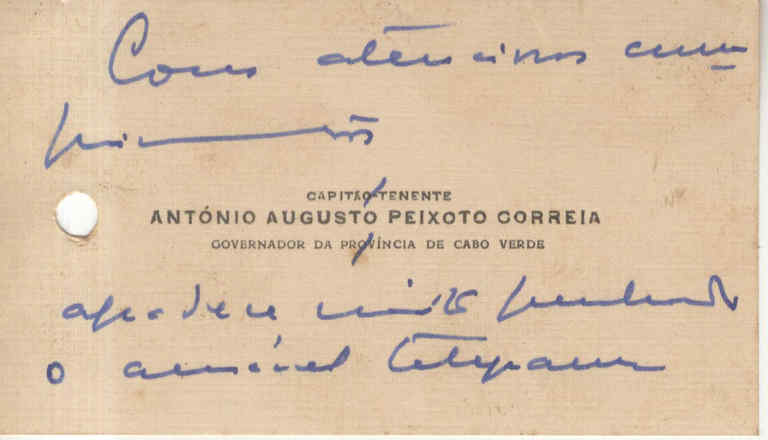 Com atenciosos cum_
primentos
CAPITÃO-TENENTE
ANTÓNIO AUGUSTO PEIXOTO CORREIA
GOVERNADOR DA PROVÍNCIA DE CABO VERDE
agradece muito penhorado
o amável telegrama